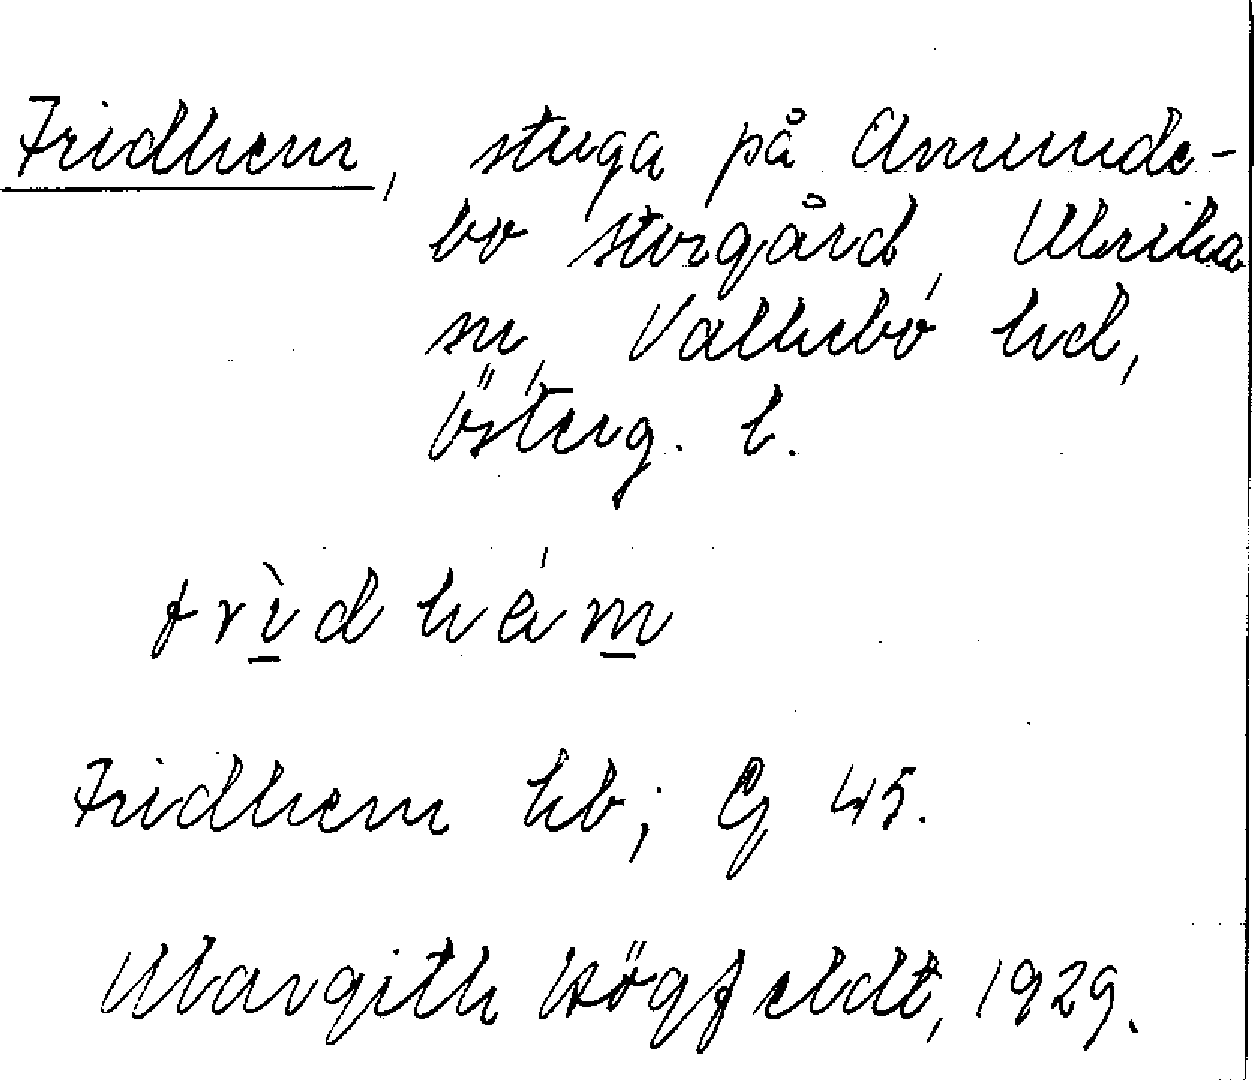 Fridhem, stuga på Amunde-
bo storgård, Ulrika
sn, Valkebo hd,
Österg. l.
frìdhèm
Fridhem hb; G 45.
Margith Högfeldt, 1929.